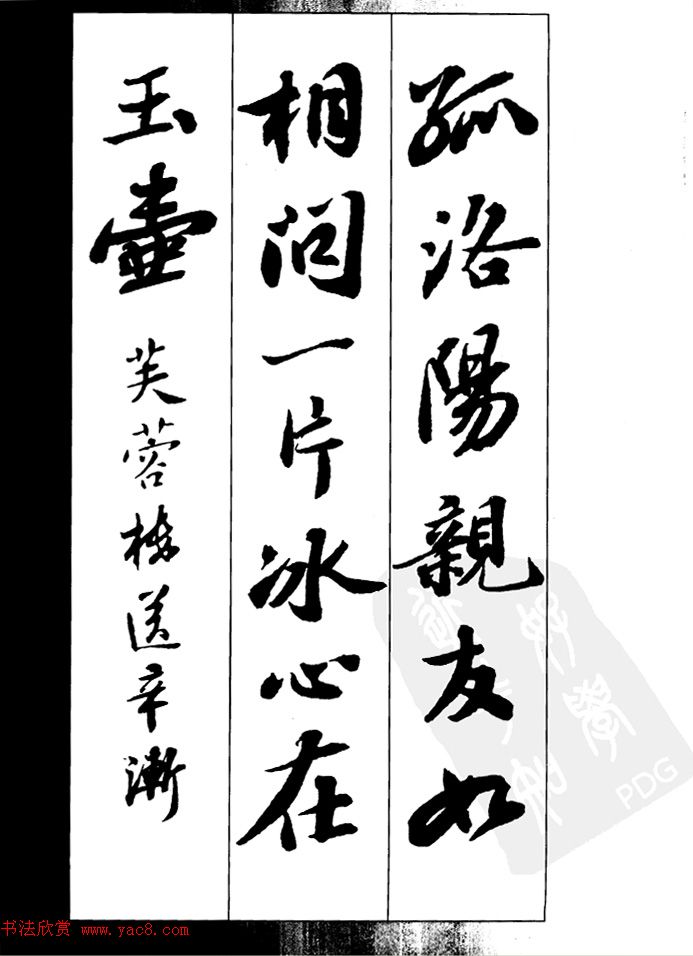 孤洛陽親友如
相问一片冰心在
玉壺
芙蓉楼送辛漸
PDG
书法欣赏 www.yac8.com